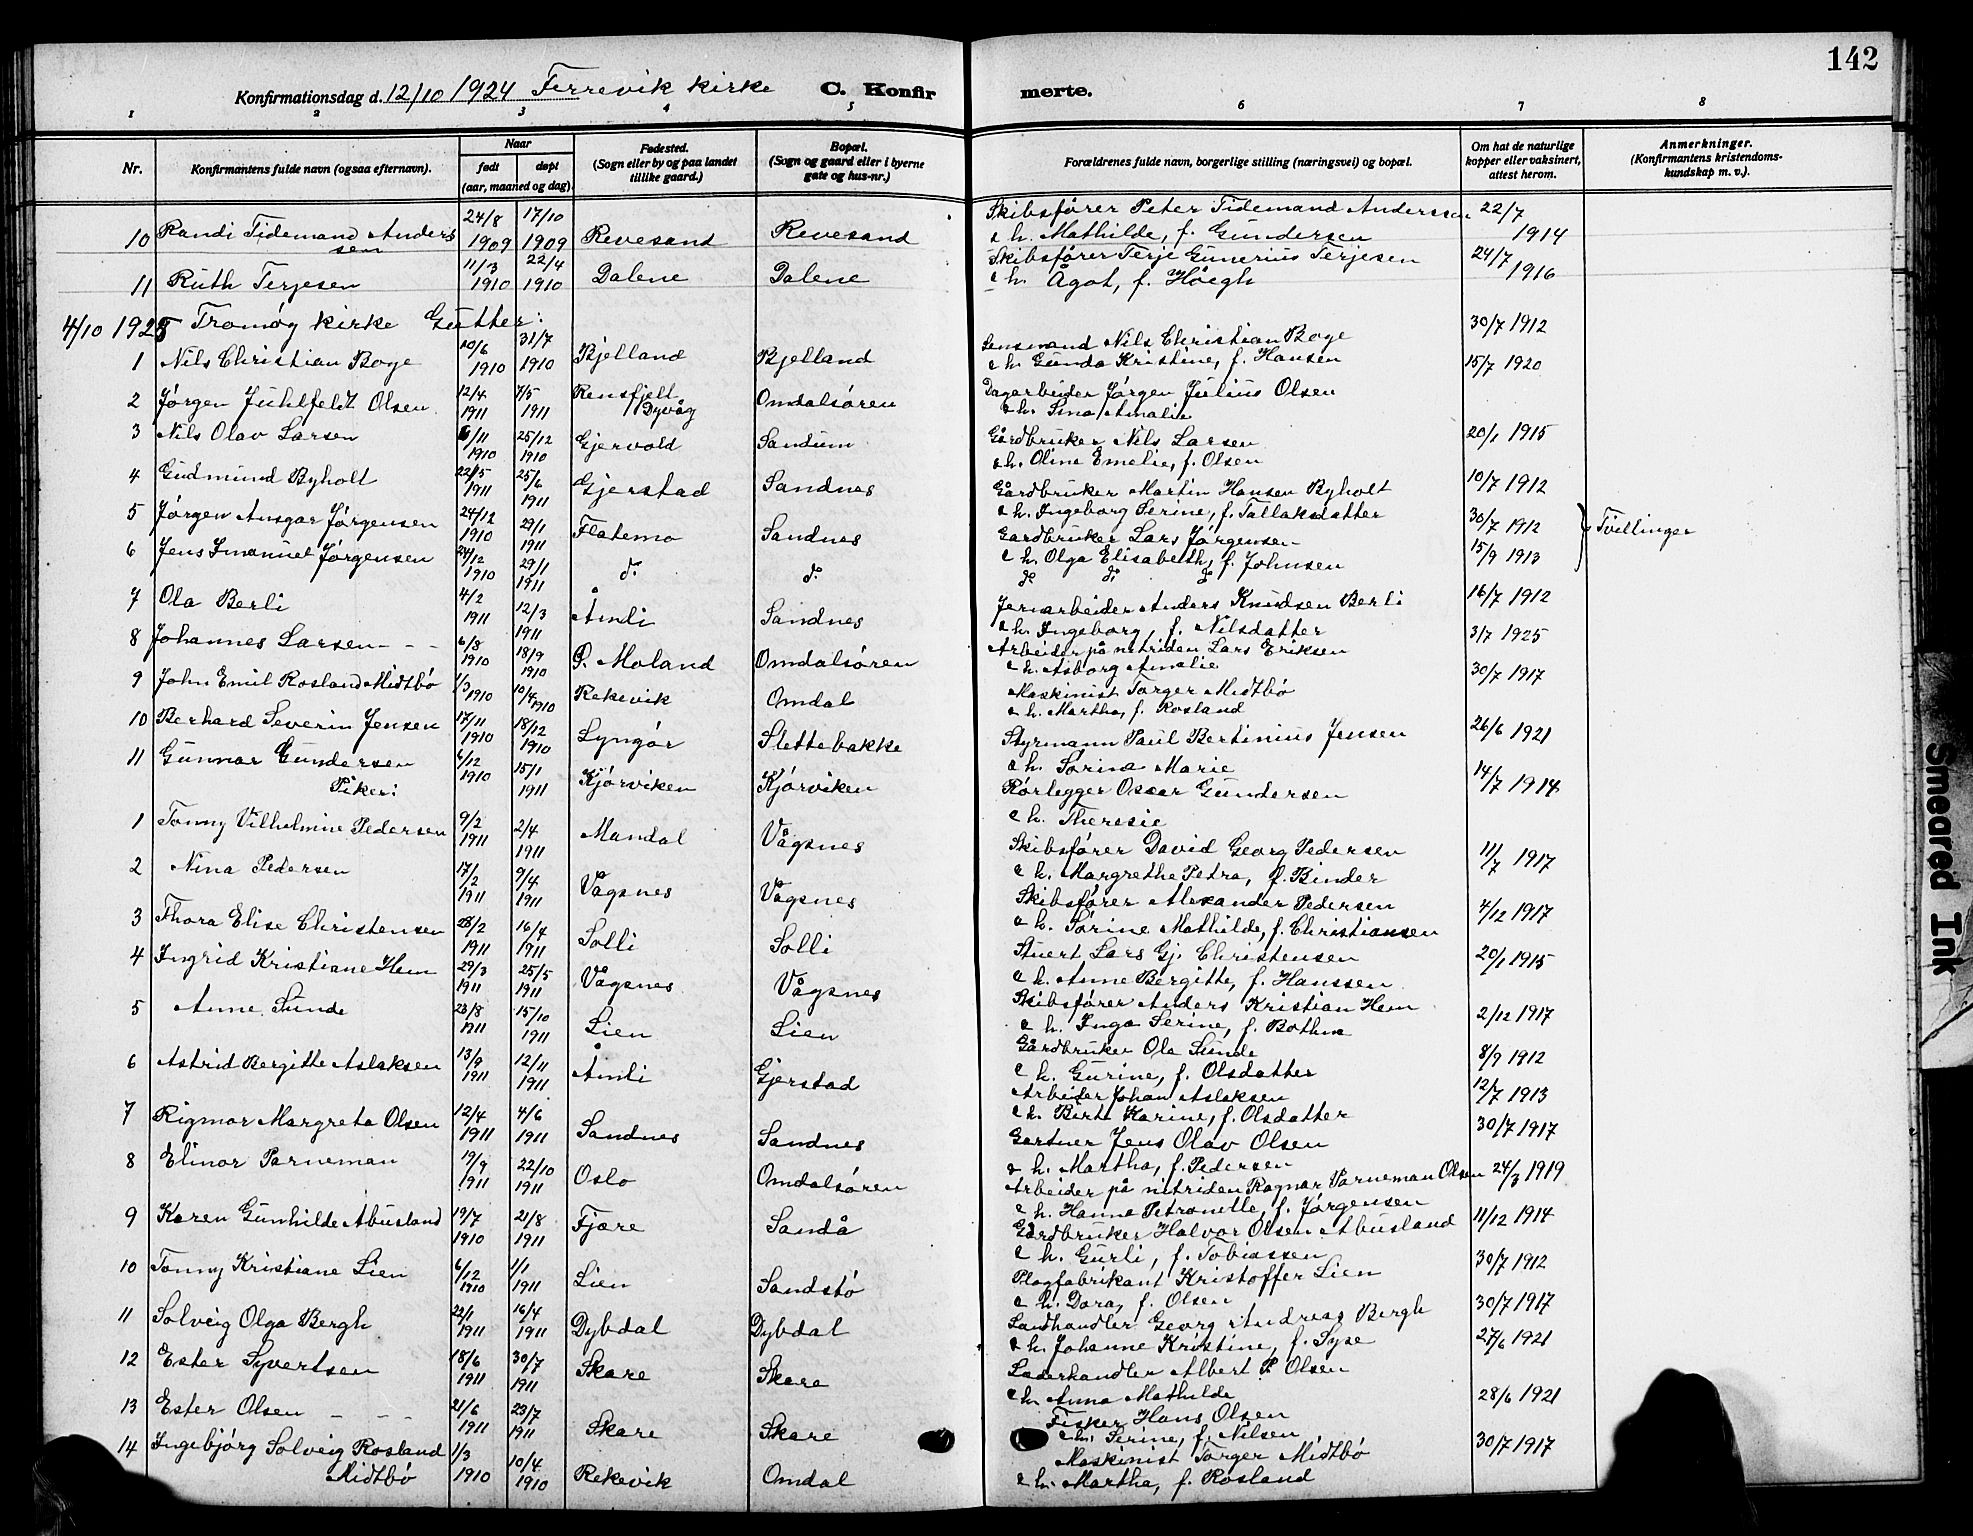 142
Konfirmationsdag d. 12/10 1924 Færrevik kirke C. Konfirmerte.
1 2 3 4 5 6 7 8
Nr. Konfirmantens fulde navn (ogsaa efternavn). Naar født døpt (aar, maaned og dag). Fødested. (Sogn eller by og paa landet tillike gaard.) Bopæl. (Sogn og gaard eller i byerne gate og hus-nr.) Forældrenes fulde navn, borgerlige stilling (næringsvei) og bopæl. Om hat de naturlige kopper eller vaksinert, attest herom. Anmerkninger. (Konfirmantens kristendomskundskap m. v.).
10 Randi Tidemand Anderssen 24/8 1909 17/10 1909 Revesand Revesand Skibsfører Peter Tidemand Anderssen e h. Mathilde, f. Gundersen 22/7 1914
11 Ruth Terjesen 11/3 1910 22/4 1910 Dalene Dalene Skibsfører Terje Gunerius Terjesen e h. Ågot, f. Høegh 24/7 1916
4/10 1925 Tromøy kirke Gutter:
1 Nils Christian Boge 10/6 1910 31/7 1910 Bjelland Bjelland Nils Christian Boge e h. Gunda Kristine, f. Hansen 30/7 1912
2 Jørgen Juhlfeldt Olsen 12/4 1911 7/5 1911 Rensfjell Dyvåg Omdalsøren Dagarbeider Jørgen Julius Olsen e h. Lina Amalie 15/7 1920
3 Nils Olav Larsen 6/11 1910 25/12 1910 Gjervold Sandum Gårdbruker Nils Larsen e h. Oline Emelie, f. Olsen 20/1 1915
4 Gudmund Byholt 22/5 1911 25/6 1911 Gjerstad Sandnes Gårdbruker Martin Hansen Byholt e h. Ingeborg Serine, f. Tallaksdatter 10/7 1912
5 Jørgen Ansgar Jørgensen 24/12 1910 29/1 1911 Flatemo Sandnes Gårdbruker Lars Jørgensen e h. Olga Elisabeth, f. Johnsen 30/7 1912 } Tvillinger
6 Jens Imanuel Jørgensen 24/12 1910 29/1 1911 d. d. d. d. d. 15/9 1913
7 Ola Berli 4/2 1911 12/3 1911 Åmli Sandnes Jernarbeider Anders Knudsen Berli e h. Ingeborg, f. Nilsdatter 16/7 1912
8 Johannes Larsen - - - 6/8 1910 18/9 1910 Ø. Moland Omdalsøren Arbeider på nitriden Lars Eriksen e h. Asborg Amalie 3/7 1925
9 John Emil Rosland Midtbø 1/3 1910 10/4 1910 Rekevik Omdal Maskinist Torger Midtbø e h. Martha, f. Rosland 30/7 1917
10 Berhard Severin Jensen 17/11 1910 18/12 1910 Lyngør Slettebakke Styrmann Paul Bertinius Jensen e h. Sørine Marie 26/6 1921
11 Gunnar Gundersen 6/12 1910 15/1 1911 Kjørviken Kjørviken Rørlegger Oscar Gundersen e h. Theresie 14/7 1914
Piker:
1 Tonny Vilhelmine Pedersen 9/2 1911 2/4 1911 Mandal Vågsnes Skibsfører David Georg Pedersen e h. Margrethe Petra, f. Binder 11/7 1917
2 Nina Pedersen 17/2 1911 9/4 1911 Vågsnes Vågsnes Skibsfører Alexander Pedersen e h. Sørine Mathilde, f. Christiansen 4/12 1917
3 Thora Elise Christensen 28/2 1911 16/4 1911 Solli Solli Stuert Lars Gj. Christensen e h. Anne Bergitte, f. Hanssen 20/1 1915
4 Ingrid Kristiane Hem 29/3 1911 25/5 1911 Vågsnes Vågsnes Skibsfører Anders Kristian Hem e h. Inga Serine, f. Bothne 2/12 1917
5 Anne Sunde 23/8 1911 15/10 1911 Lien Lien Gårdbruker Ole Sunde e h. Gurine, f. Olsdatter 8/9 1912
6 Astrid Bergitte Aslaksen 13/9 1911 12/11 1911 Åmli Gjerstad Arbeider Johan Aslaksen e h. Birte Karine, f. Olsdatter 12/7 1913
7 Rigmor Margreta Olsen 12/4 1911 4/6 1911 Sandnes Sandnes Gartner Jens Olav Olsen e h. Martha, f. Pedersen 30/7 1917
8 Elinor Parneman 19/9 1911 22/10 1911 Oslo Omdalsøren Arbeider på nitriden Ragnar Parneman Olsen e h. Hanna Petronelle, f. Jørgensen 24/3 1919
9 Karen Gunhilde Abusland 19/7 1910 21/8 1911 Fjære Sandå Gårdbruker Halvor Olsen Abusland e h. Gurli, f. Tobiassen 11/12 1914
10 Tonny Kristiane Lien 6/12 1910 1/1 1911 Lien Sandstø Plogfabrikant Kristoffer Lien e h. Dora, f. Olsen 30/7 1912
11 Solveig Olga Bergh 22/1 1911 16/4 1911 Dybdal Dybdal Landhandler Georg Andreas Bergh e h. Johanne Kristine, f. Syse 30/7 1917
12 Ester Syvertsen 18/6 1911 30/7 1911 Skare Skare Læderhandler Albert P. Olsen e h. Anna Mathilde 27/6 1921
13 Ester Olsen - - - 21/6 1911 23/7 1911 Skare Skare Fisker Hans Olsen e h. Serine, f. Nilsen 28/6 1921
14 Ingebjørg Solveig Rosland Midtbø 1/3 1910 10/4 1910 Rekevik Omdal Maskinist Torger Midtbø e h. Martha, f. Rosland 30/7 1917
Smeared Ink